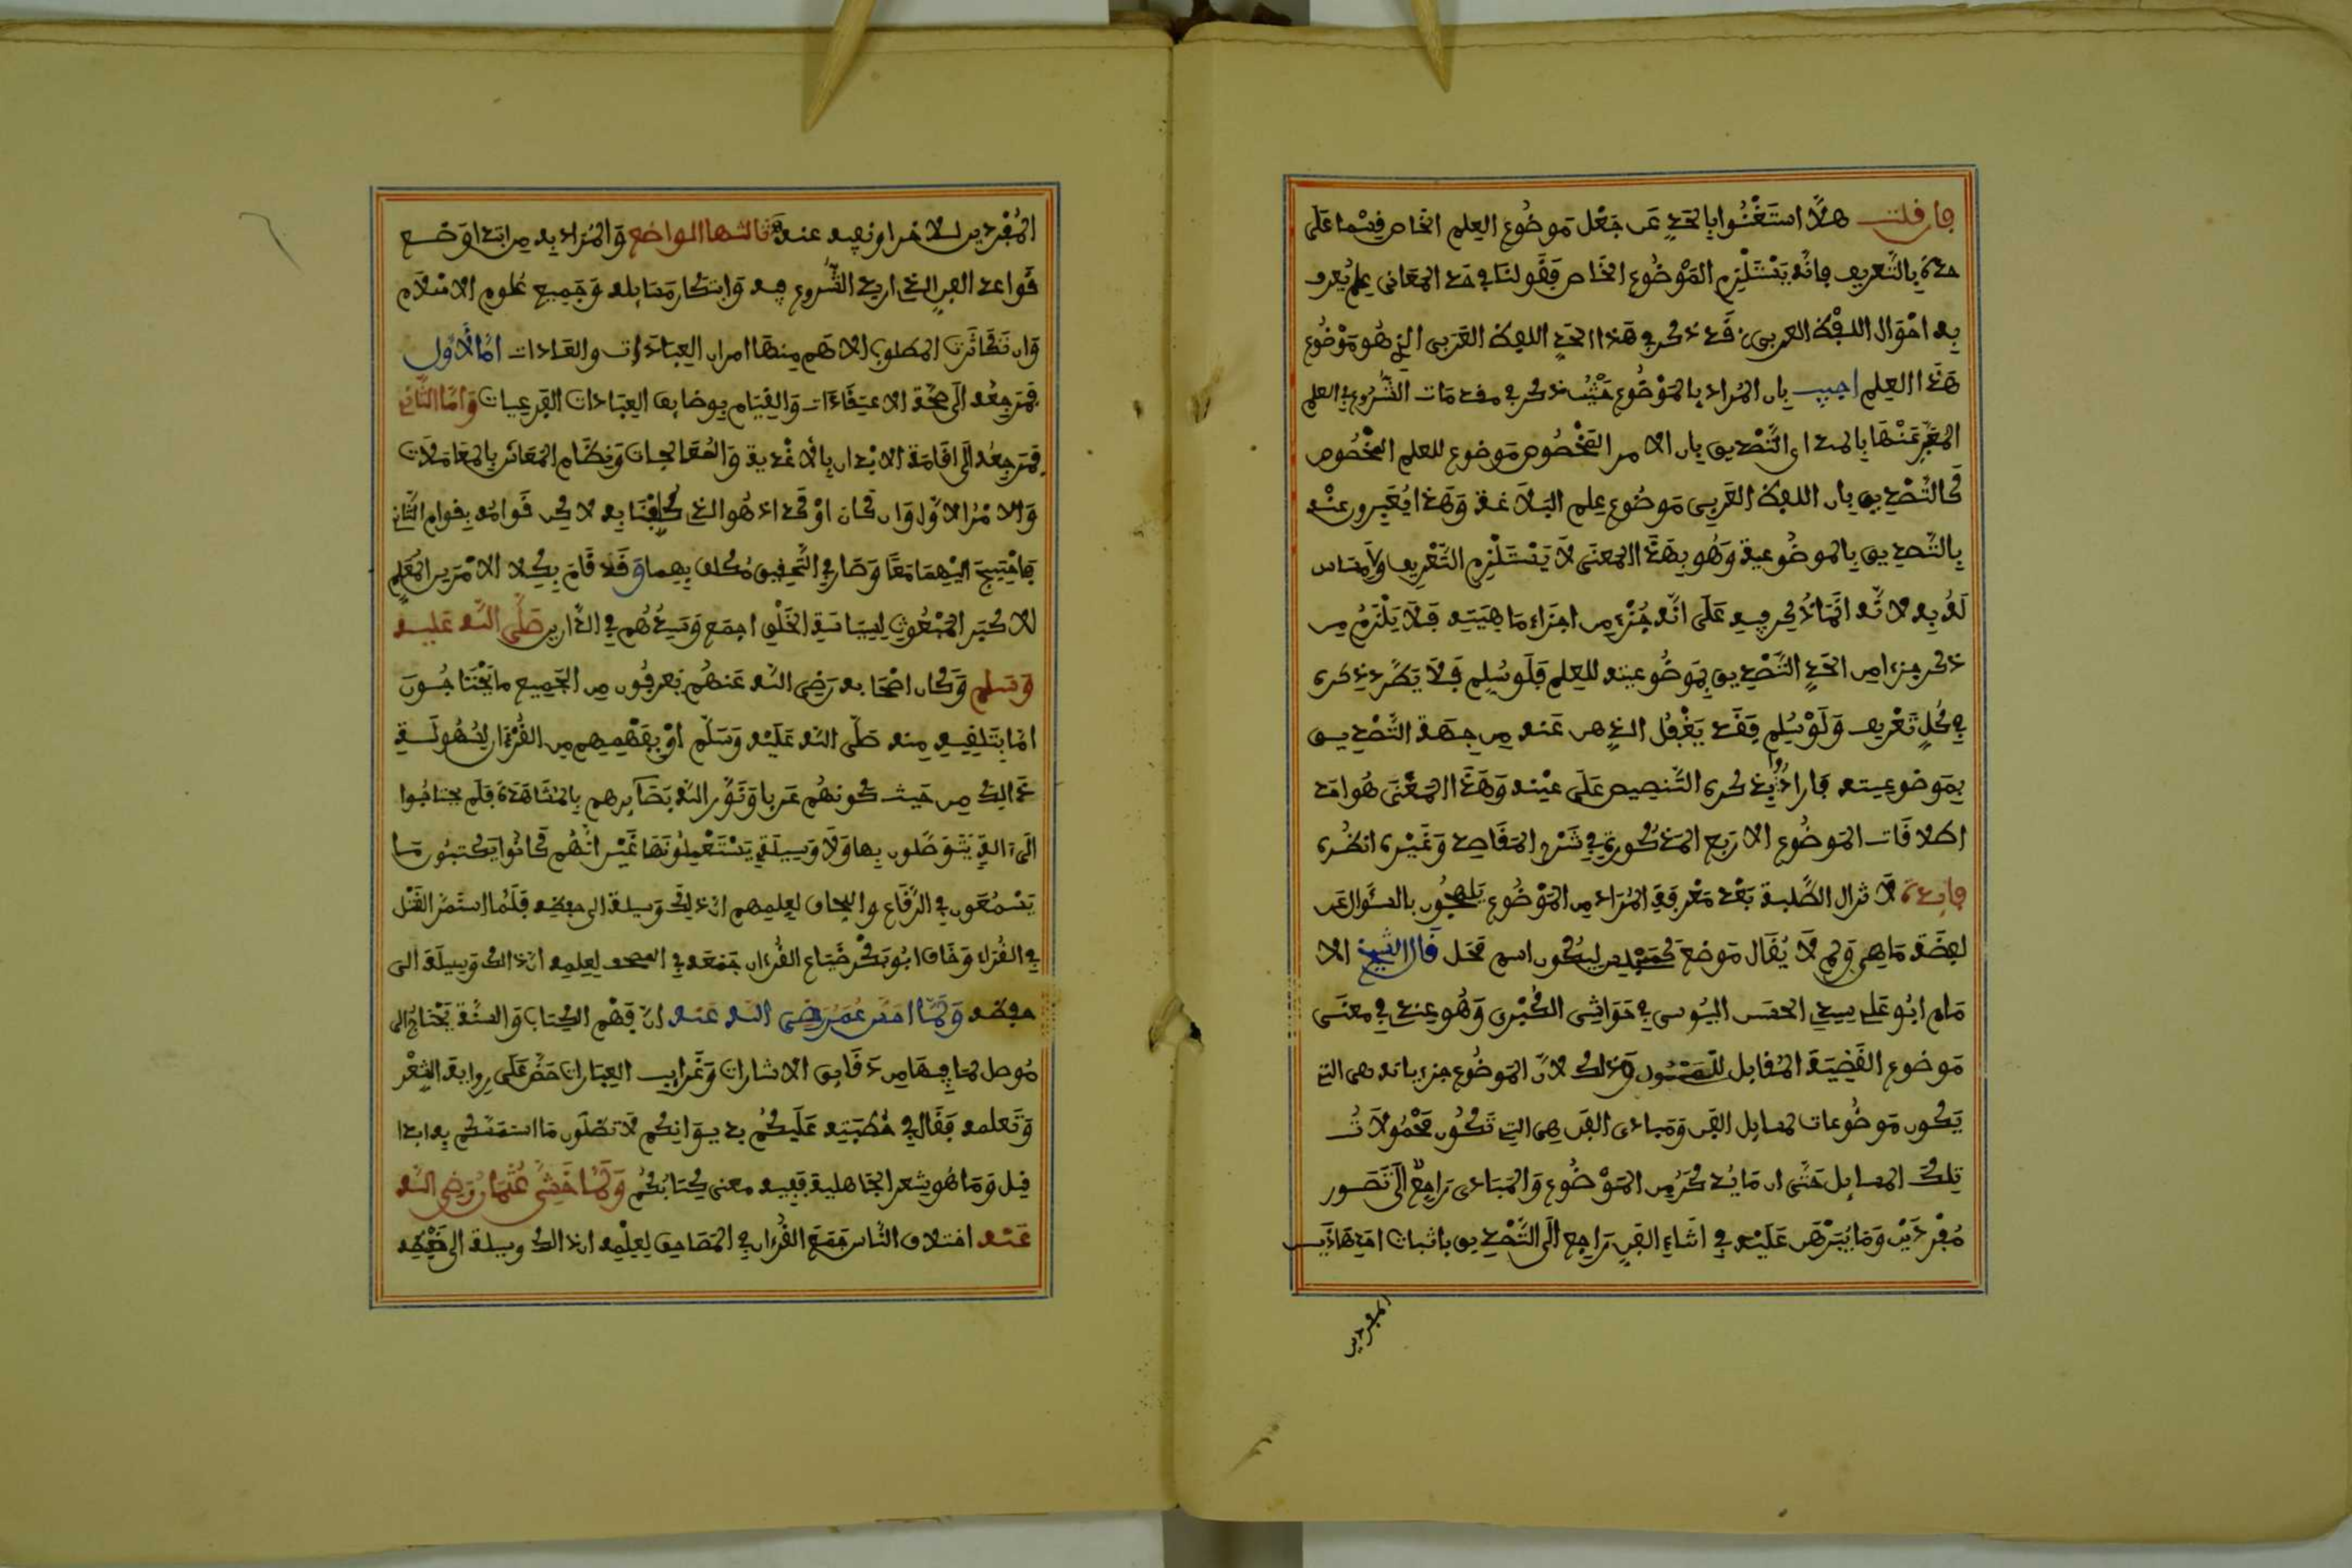 فإن قلت هلا استغنوا بالحد عن جعل موضوع العلم الخاص قسما على
حدة بالتعريف فإنه يستلزم الموضوع الخاص فقولنا في حد المعاني علم يعرف
به احوال اللفظ العربي قد ذكر في هذا الحد اللفظ العربي الذي هو موضوع
هذا العلم اجيب بان المراد بالموضوع حيث ذكر في مقدمات الشروع في العلم
المعبر عنها بالمبدا اي التصديق بان الامر المخصوص موضوع للعلم المخصوص
كالتصديق بان اللفظ العربي موضوع علم البلاغة وهذا يعبرون عنه
بالتصديق بالموضوعية وهو بهذا المعنى لا يستلزم التعريف ولا مساس
له به لانه انما ذكر فيه على انه جزء من اجزاء ماهيته فلا يلزم من
ذكر جزء من الحد التصديق بموضوعيته للعلم فلو سلم فلا يطرد ذكره
في كل تعريف ولو سلم فقد يغفل الذهن عنه من جهة التصديق
بموضوعيته فارادوا بذكره التنصيص على عينه وهذا المعنى هو احد
اطلاقات الموضوع الاربع المذكورة في شرح المقاصد وغيره انظره
فايدة لا تزال الطلبة بعد معرفة المراد من الموضوع يلهجون بالسؤال عن
لفظة ما هي ولم لا يقال موضع كمجلس ليكون اسم محل قال الشيخ الا
مام ابو علي سيدي الحسن اليوسي في حواشي الكبرى وهو عندي في معنى
موضوع القضية المقابل للمحمول وذلك لان الموضوع جزءياته هي التي
يكون موضوعات لمسايل الفن ومبادي الفن هي التي تكون محمولات
تلك المسايل حتى ان ما يذكر من الموضوع والمبادي راجع الى تصور
مفردين وما يبرهن عليه في اثناء الفن راجع الى التصديق باثبات احد هاذين
المفردين
المفردين للاخر او نفيه عنه ثالثها الواضع والمراد به من ابتدا وضع
قواعد الفن الذي اريد الشروع فيه وابتكار مسايله وجميع علوم الاسلام
وان تكاثرت المطلوب الاهم منها امران العبادات والعادات اما الاول
فمرجعه الى صحة الاعتقادات والقيام بوضايف العبادات الفرعيات واما الثاني
فمرجعه الى اقامة الابدان بالاغذية والمعالجات ونظام المعاش بالمعاملات
والامر الاول وان كان اوكد اذ هو الذي كلفنا به لاكن قوامه بقوام الثاني
فاحتيج اليهما معا وصار في التحقيق مكلف بهما وقد قام بكلا الامرين المعلم
الاكبر المبعوث لسياسة الخلق اجمع وسيدهم في الدارين صلى الله عليه
وسلم وكان اصحابه رضي الله عنهم يعرفون من الجميع ما يحتاجون
اما بتلقيه منه صلى الله عليه وسلم او بفهمهم من القرءان لسهولة
ذالك من حيث كونهم عربا وتنور الله بصايرهم بالمشاهدة فلم يحتاجوا
الى ءالة يتوصلون بها ولا وسيلة يستعملونها غير انهم كانوا يكتبون ما
يسمعون في الرقاع واللخاف لعلمهم ان ذلك وسيلة الى حفظه فلما استحر القتل
في القراء وخاف ابو بكر ضياع القرءان جمعه في الصحف لعلمه ان ذالك وسيلة الى
حفظه ولما احس عمر رضي الله عنه ان فهم الكتاب والسنة يحتاج الى
موصل لما فيهما من دقايق الاشارات وغرايب العبارات حض على رواية الشعر
وتعلمه فقال في خطبته عليكم بديوانكم لا تضلون ما استمسكتم به ابدا
قيل وما هو شعر الجاهلية ففيه معنى كتابكم ولما خشي عثمان رضي الله
عنه اختلاف الناس جمع القرءان في المصاحف لعلمه ان ذالك وسيلة الى ضبطه